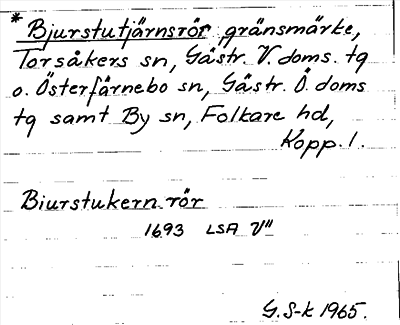 * Bjurstutjärnsrör, gränsmärke,
Torsåkers sn, Gästr. V. doms. tg
o. Österfärnebo sn, Gästr. Ö. doms
tg samt By sn, Folkare hd,
Kopp. l.
Biurstukern rör
1693 LSA V"
G. S-k 1965.